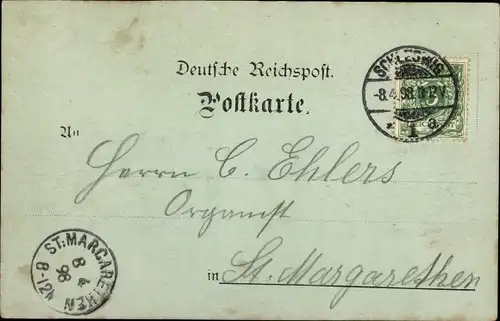 Deutsche Reichspost.
Postkarte.
SCHLESWIG
-8.4.98.
1 a.
An
Herrn C. Ehlers
Organist
in St. Margarethen
ST. MARGARETHEN
8 4
98
8-12N